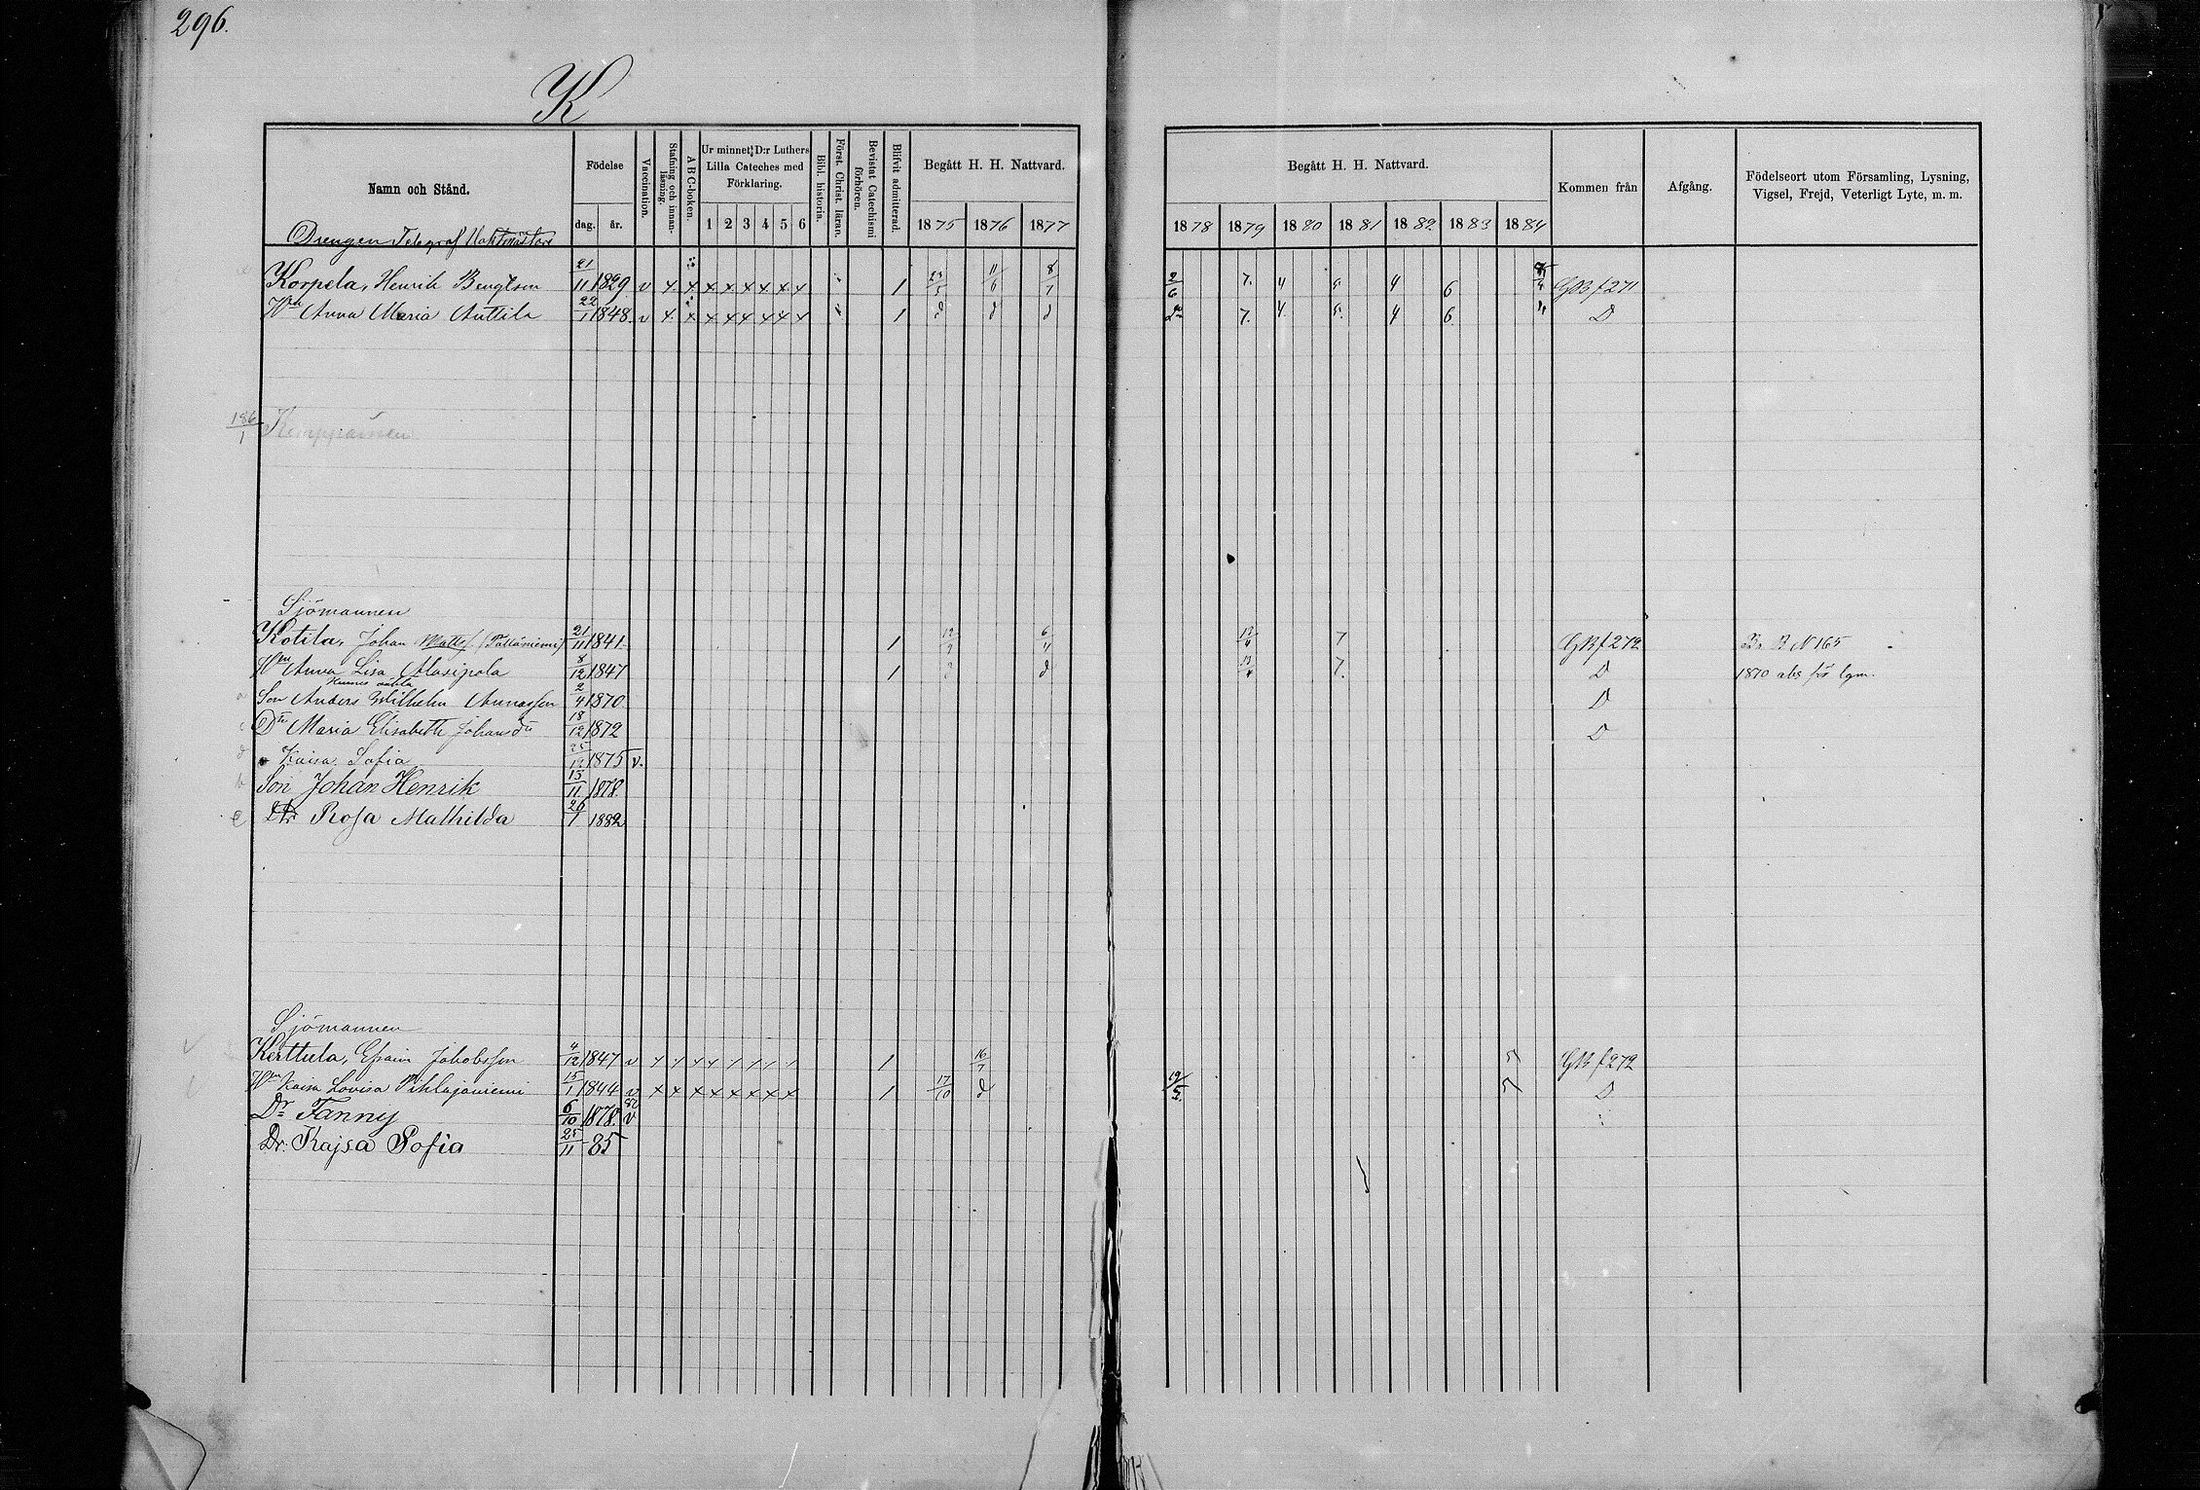 296.
K
Namn och Stånd.
Födelse
dag. år.
Vaccination.
Stafning och innanläsning.
A B C-boken.
Ur minnet: D:r Luthers Lilla Cateches med Förklaring.
1 2 3 4 5 6
Bibl. historia.
Först. Christ. läran.
Bevistat Catechismi förhören.
Blifvit admitterad.
Begått H. H. Nattvard.
1875 1876 1877
Begått H. H. Nattvard.
1878 1879 1880 1881 1882 1883 1884
Kommen från
Afgång.
Födelseort utom Församling, Lysning, Vigsel, Frejd, Veterligt Lyte, m. m.
Drengen Telegraf
Korpela, Henrik Bengtson 21/11 1829 v x. x x x x x x x 1 11/6 8/7 2/6 7. 4 5. 4 6 GB f 271
Hu Anna Maria Anttila 22/1 1848. v x. x x x x x x x 1 d d d do 7. 4. 5. 4 6. " D
186/1 Kemppainen
Sjömannen
Kotila, Johan Matts/ 21/11 1841. 1 12/9 6/4 13/4 7 GB f 272 N 165
Hu Anna Lisa Alasipola 8/12 1847 1 d 13/4 7. D 1870 abs för lgm.
Son Anders Wilhelm Annasson 2/4 1870 D
c Dr Maria Elisabeth Johansdr 18/12 1872 D
d " Kaisa Sofia 25/12 1875 v.
b Son Johan Henrik 15/11 1878.
e Dr Rosa Mathilda 26/1 1882
Sjömannen
Kerttula, Efraim Jakobsson 4/12 1847 v 1 16/7 5 GB f 272
Hu Kaisa Lovisa Pihlajaniemi 15/1 1844 v x x x x x x x x 1 17/10 d 19/5. 5 D
Dr Fanny 6/10 1878. v
Dr. Kajsa Sofia 25/11 -85